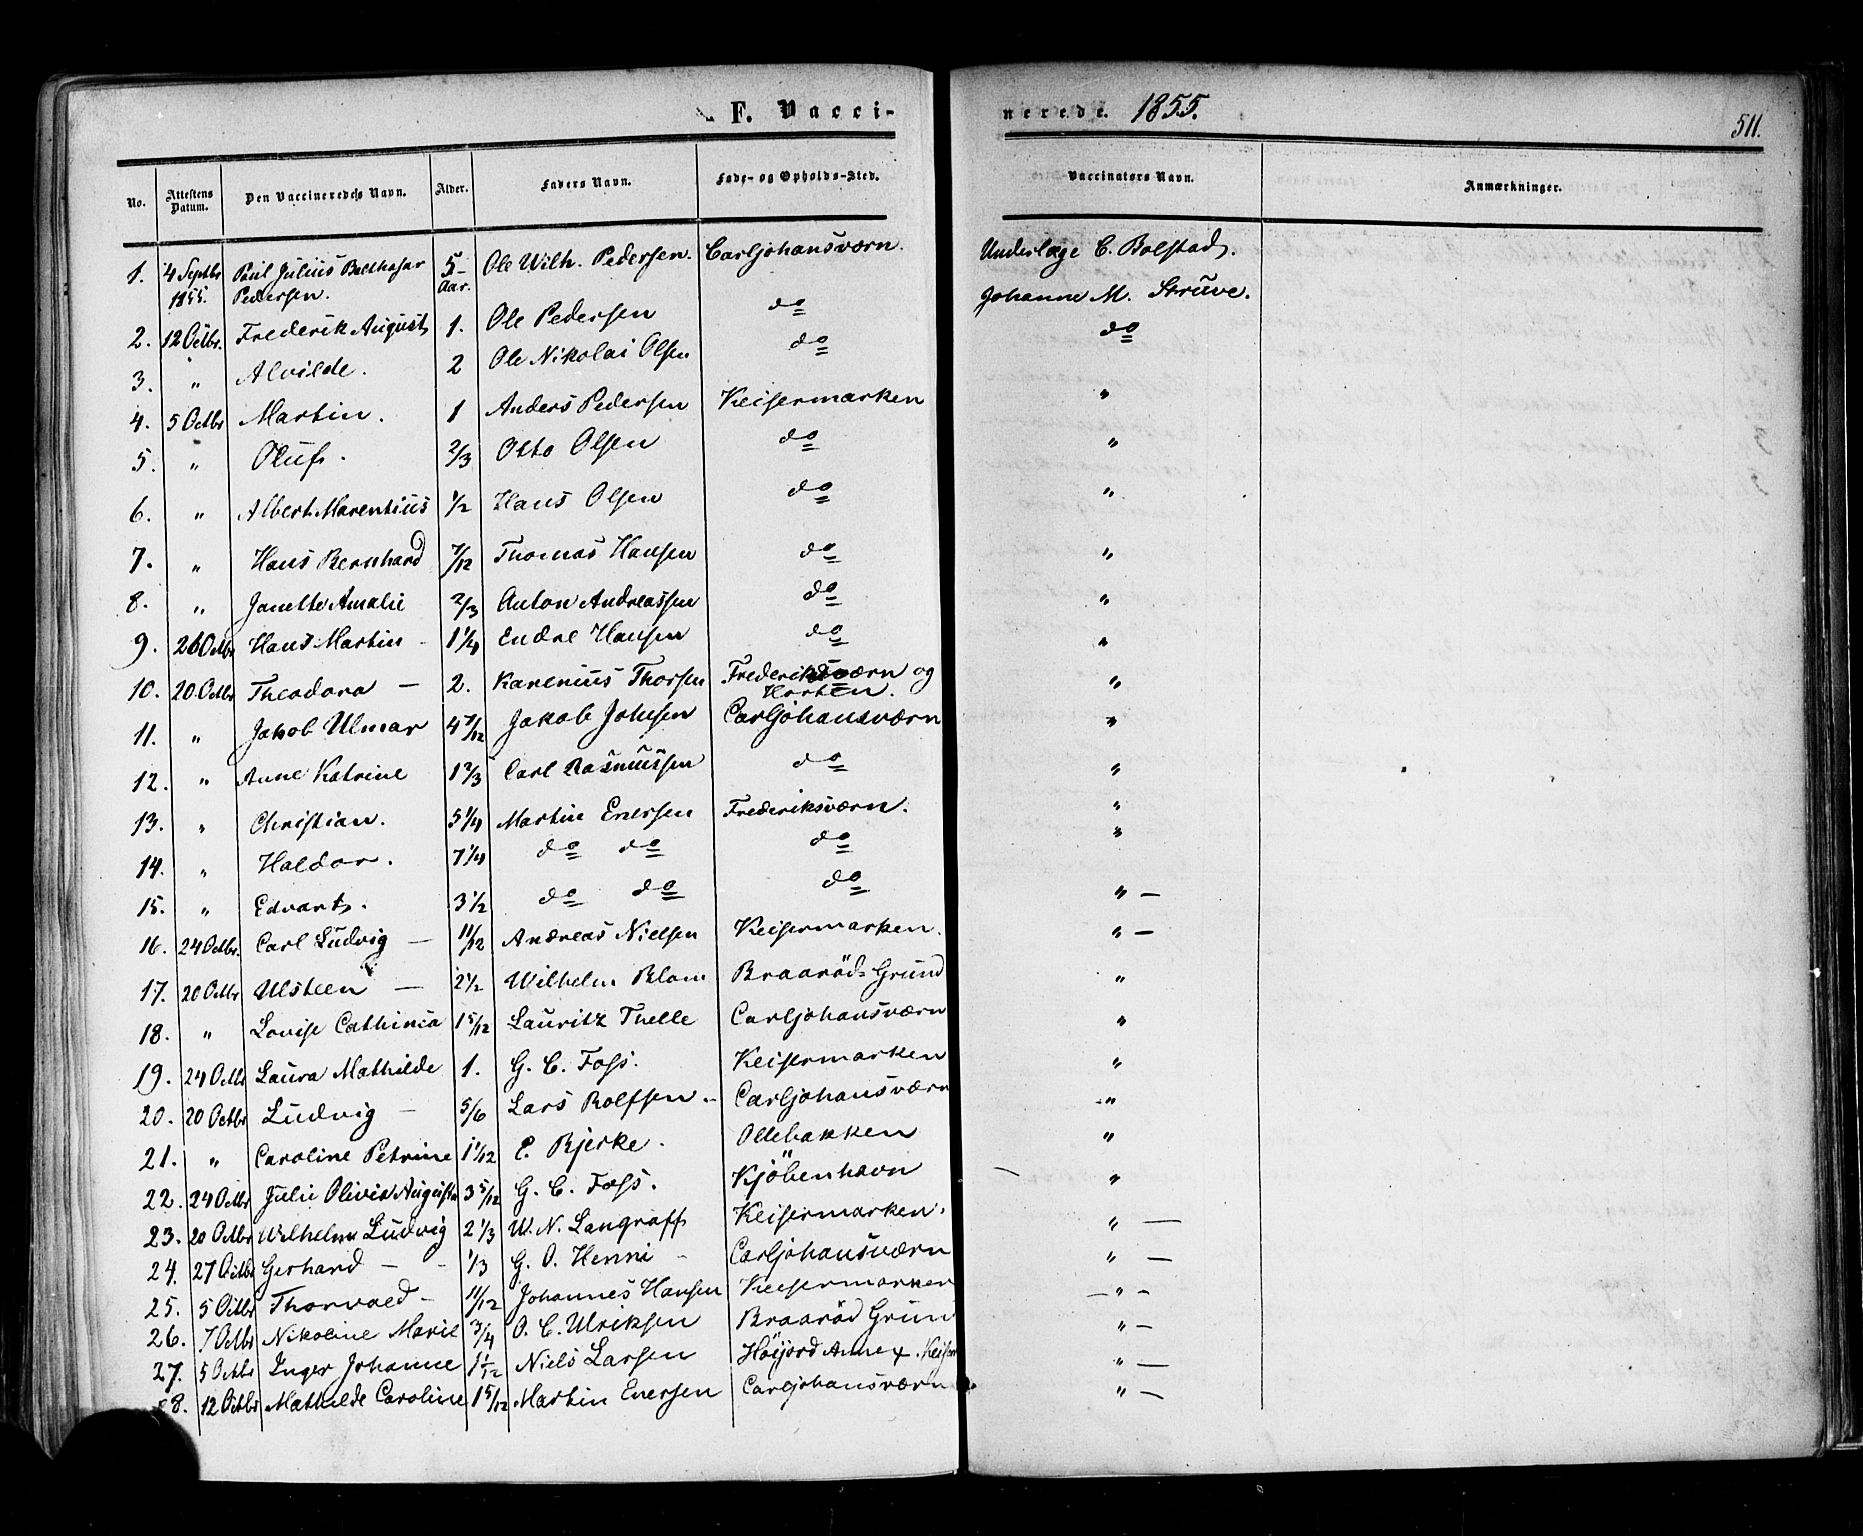 F. Vaccinerede. 1855.
511.
No. Attestens Datum. Den Vaccineredes Navn. Alder. Faders Navn. Føde- og Opholds-Sted. Vaccinators Navn. Anmærkninger.
1. 4 Septbr 1855. Paul Julius Balthasar Pedersen. 5 Aar. Ole Wilh. Pedersen. Carljohansværn. Underlæge C. Bolstad.
Johanne M. Strüve.
2. 12 Octbr. Frederik August 1. Ole Pedersen do do
3. " Alvilde. 2 Ole Nikolai Olsen do
4. 5 Octbr Martin. 1 Anders Pedersen Keisermarken "
5. " Oluf. 2/3 Otto Olsen do "
6. " Albert Marentius 1/2 Hans Olsen do "
7. " Hans Bernhard 7/12 Thomas Hansen do "
8. " Janette Amalie 2/3 Anton Andreassen do "
9. 26 Octbr Hans Martin - 1 1/4 Endre Hansen do "
10. 20 Octbr Theodora — 2. Karenius Thorsen Frederiksværn og Horten. "
11. " Jakob Ulmar 4 7/12 Jakob Johnsen Carljohansværn "
12. " Anne Katrine 1 2/3 Carl Rasmussen do "
13. " Christian. 5 1/4 Martin Enersen Frederiksværn. "
14. " Haldor. 7 1/4 do do do "
15. " Edvart. 3 1/2 do do do " —
16. 24 Octbr. Carl Ludvig — 11/12 Andreas Nielsen Keisermarken. " —
17. 20 Octbr Ulsteen — 2 1/2 Wilhelm Blom Braaröd= Grund "
18. " Lovise Cathinia 1 5/12 Lauritz Thelle Carljohansværn "
19. 24 Octbr Laura Mathilde 1. G. C. Foss. Keisermarken "
20. 20 Octbr Ludvig — 5/6 Lars Rolfsen - Carljohansværn "
21. " Caroline Petrine 1 1/12 E. Bjerke. Ollebakken "
22. 24 Octbr Julie Olivia Augusta 3 5/12 G. C. Foss. Kjöbenhavn "
23. 20 Octbr Wilhelm Ludvig 2 1/3 W. N. Langraff Keisermarken. " —
24. 27 Octbr Gerhard - - 1/3 G. O. Henni - Carljohansværn " —
25. 5 Octbr Thorvald - 11/12 Johannes Hansen Keisermarken — " -
26. 7 Octbr Nikoline Marie 3/4 O. C. Ulriksen Braaröd Grun " —
27. 5 Octbr Inger Johanne 1 1/12 Niels Larsen Höijord Annex. Keiser " —
28. 12 Octbr Mathilde Caroline 1 5/12 Martin Enersen Carljohansværn " —